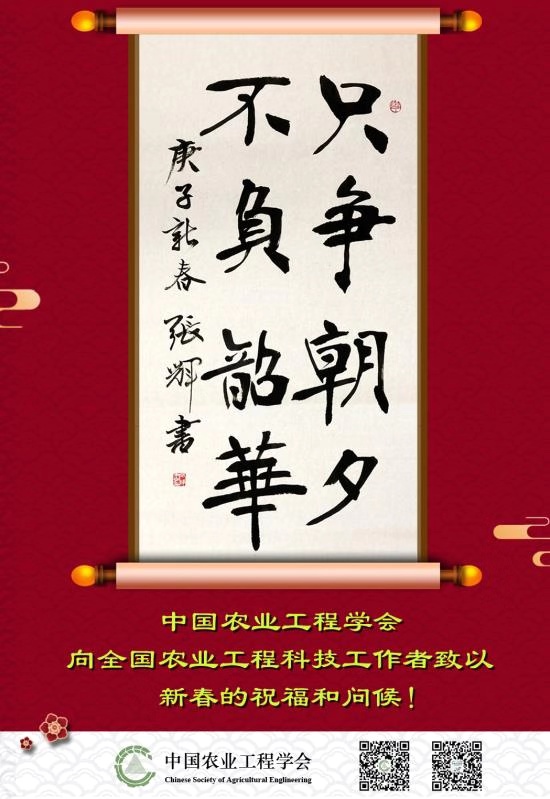 只争朝夕
不負韶華
庚子新春 張輝書
中国农业工程学会
向全国农业工程科技工作者致以
新春的祝福和问候！
中国农业工程学会
Chinese Society of Agricultural Englineering